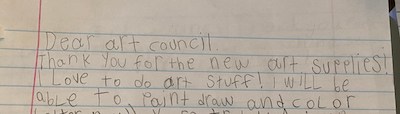 Dear art council.
Thank you for the new art supplies!
I Love to do art stuff! I will be
able to paint draw and color